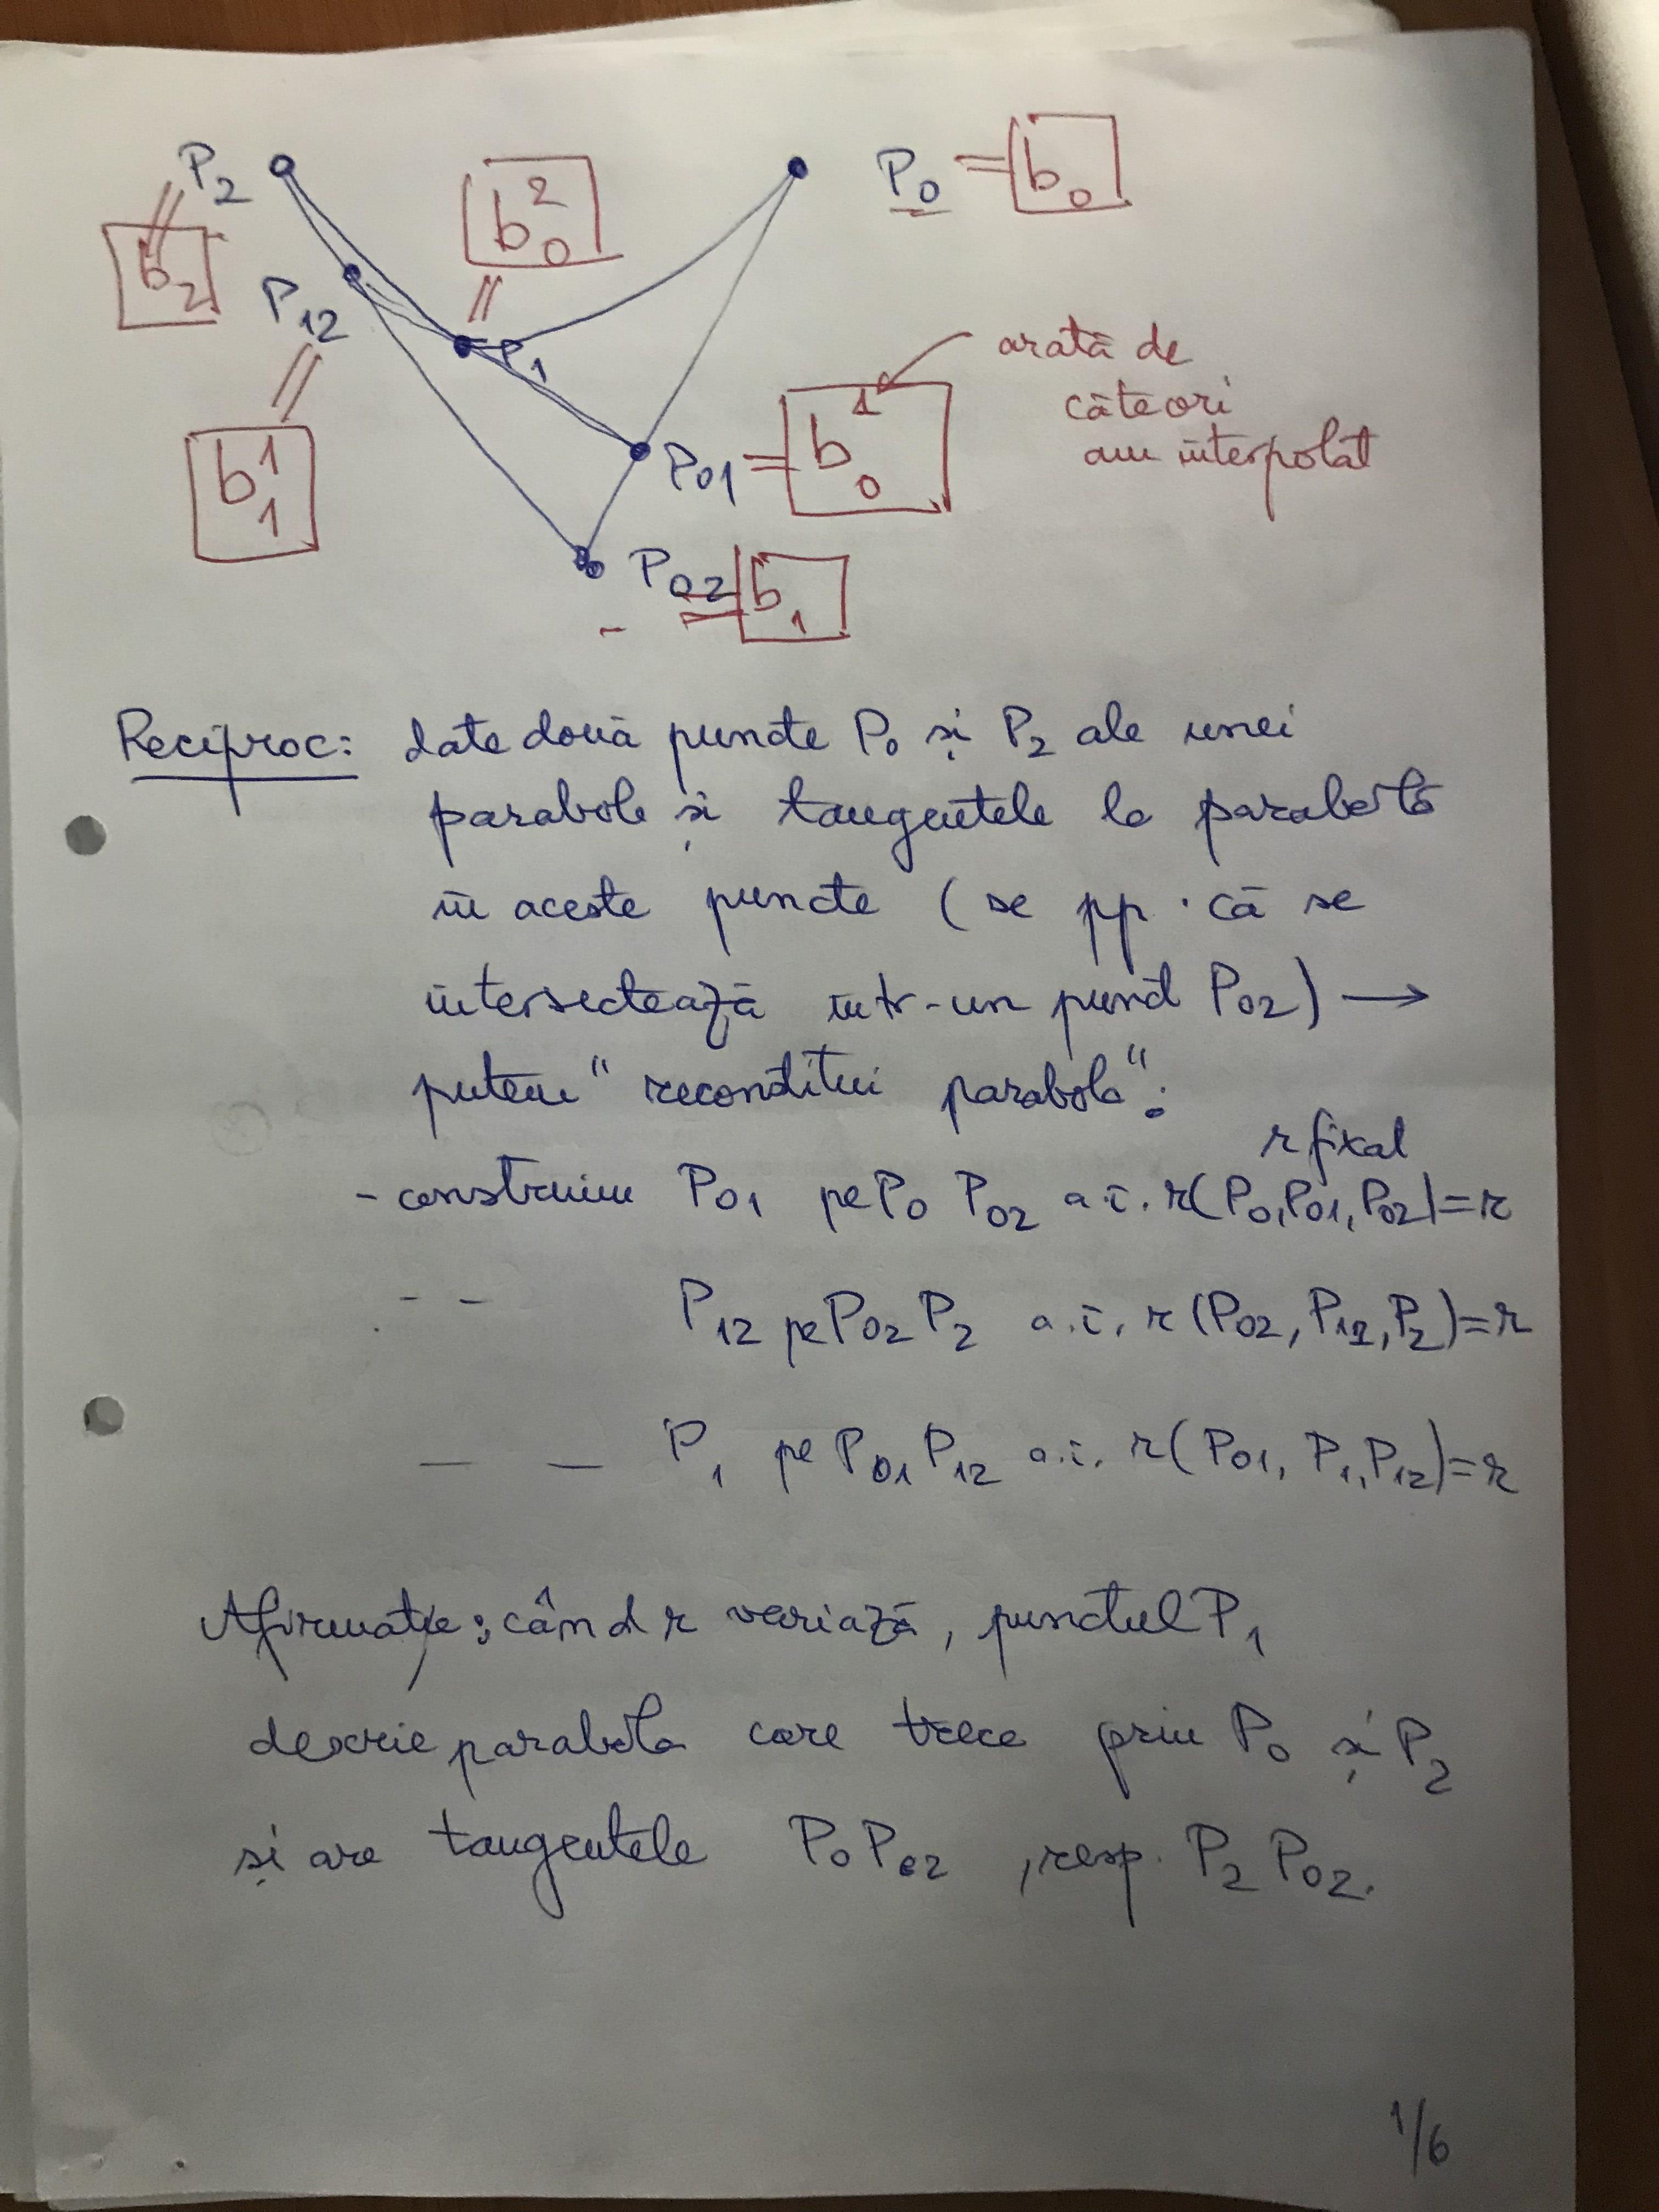 P2
b0^2
P0 = b0
b2
P12
P1
arată de
câte ori
am interpolat
b1^1
P01 = b0^1
P02 = b1
Reciproc: date două puncte P0 și P2 ale unei
parabole și tangentele la parabolă
în aceste puncte (se pp. că se
intersectează într-un punct P02) →
putem "reconstitui parabola":
r fixat
- construim P01 pe P0 P02 a.î. r(P0,P01,P02)=r
- - P12 pe P02 P2 a.î. r(P02, P12, P2)=r
— — P1 pe P01 P12 a.î. r(P01, P1, P12)=r
Afirmație: când r variază, punctul P1
descrie parabola care trece prin P0 și P2
și are tangentele P0P02, resp. P2 P02.
1/6